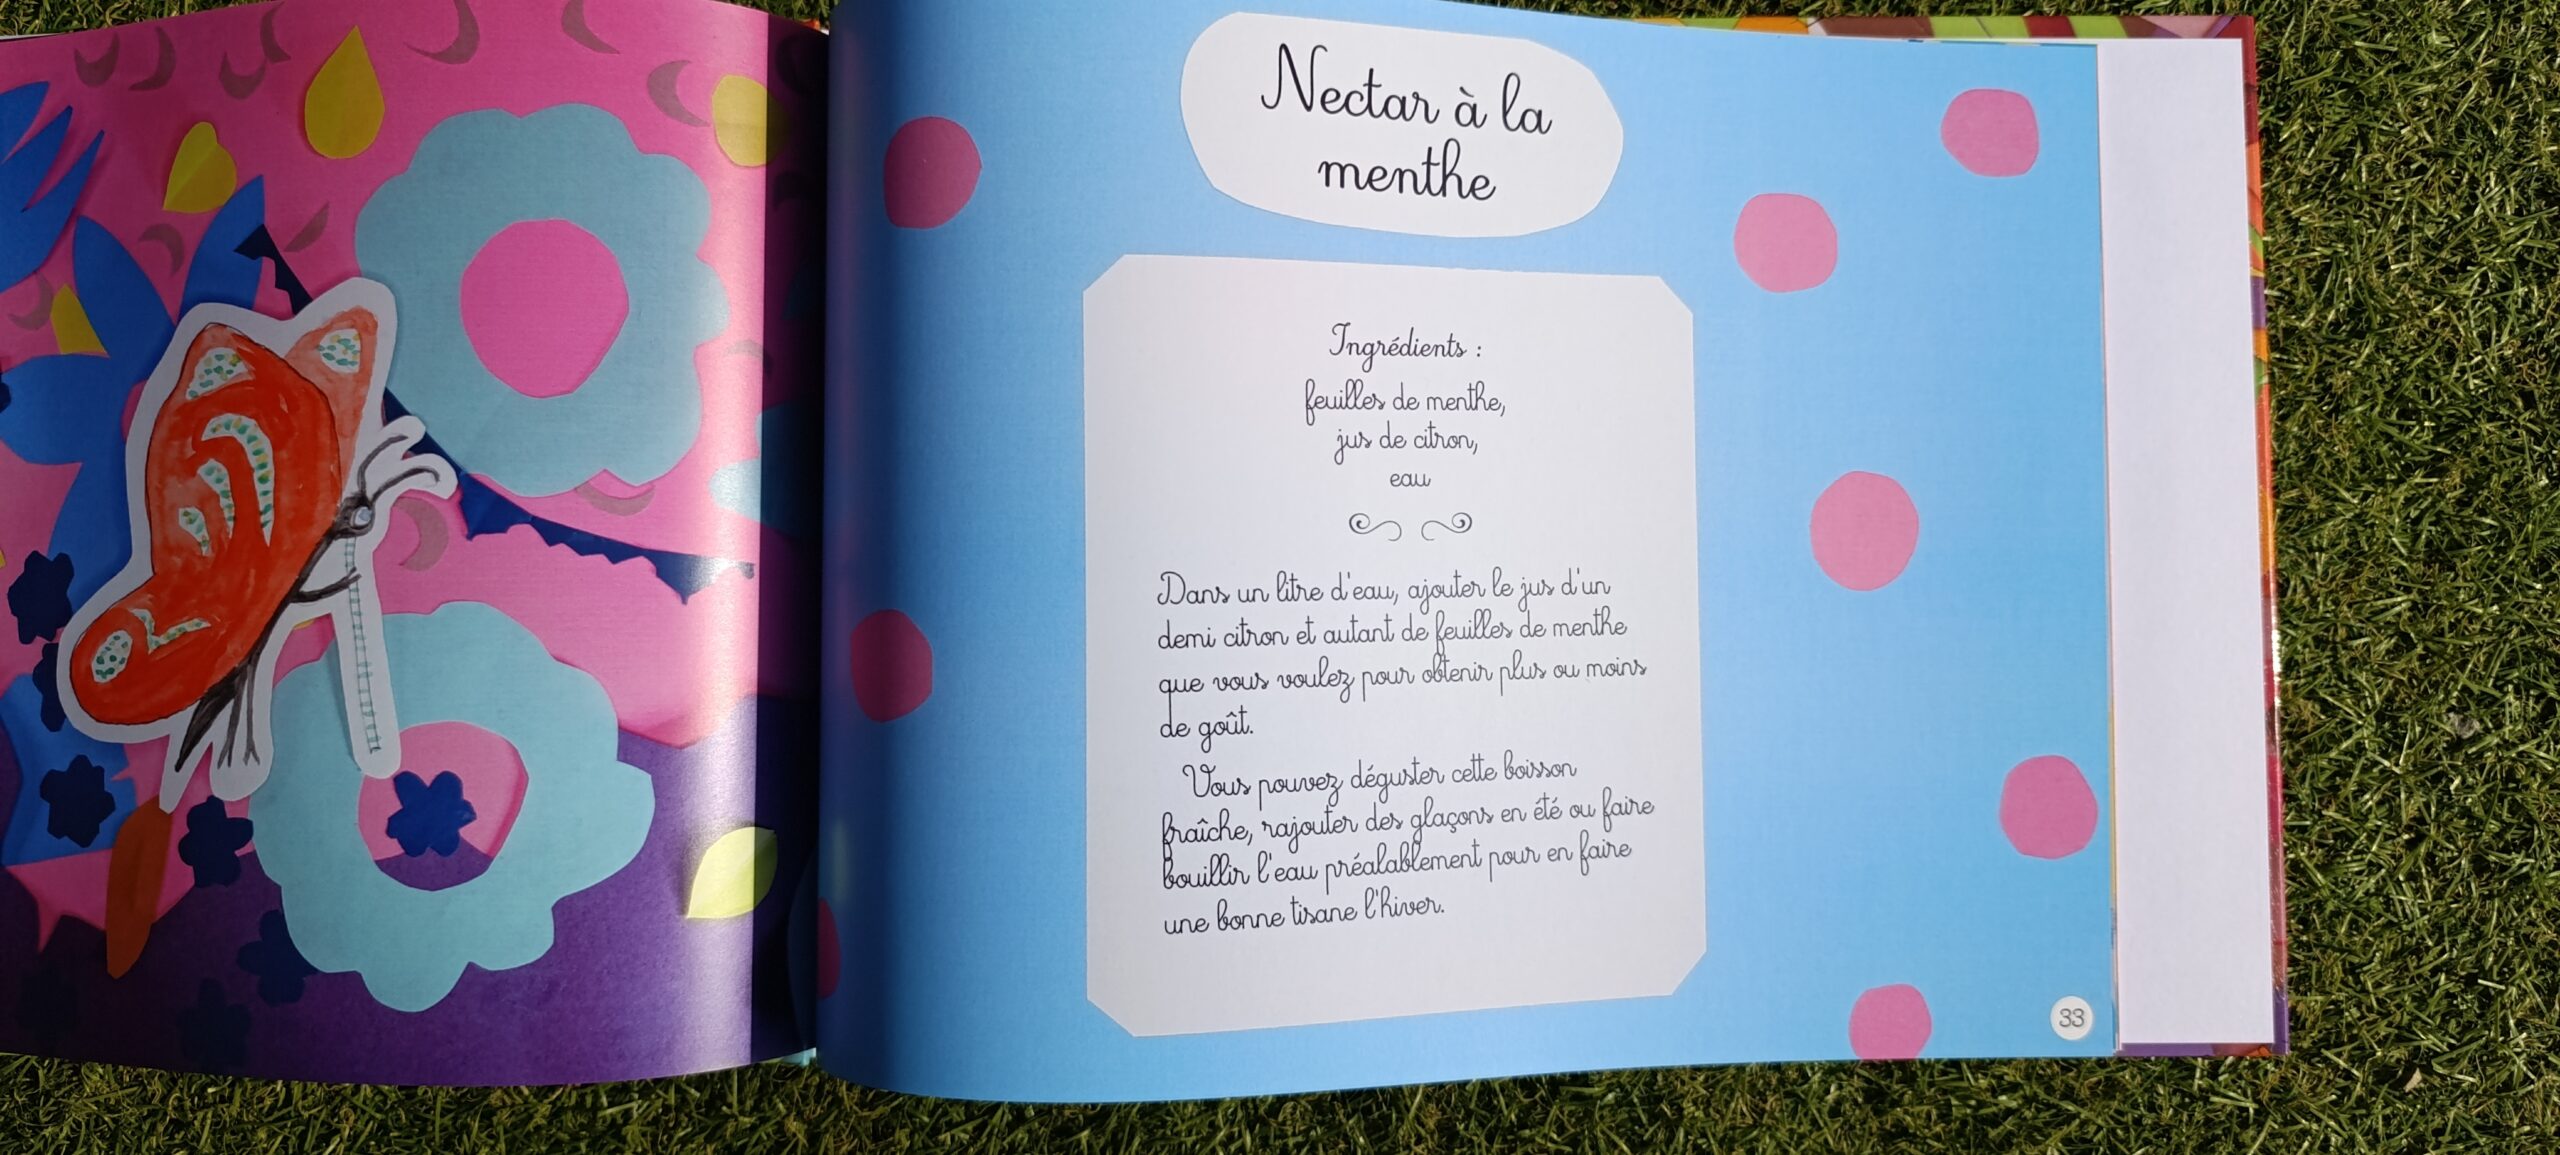 Nectar à la
menthe
Ingrédients :
feuilles de menthe,
jus de citron,
eau
Dans un litre d'eau, ajouter le jus d'un
demi citron et autant de feuilles de menthe
que vous voulez pour obtenir plus ou moins
de goût.
Vous pouvez déguster cette boisson
fraîche, rajouter des glaçons en été ou faire
bouillir l'eau préalablement pour en faire
une bonne tisane l'hiver.
33